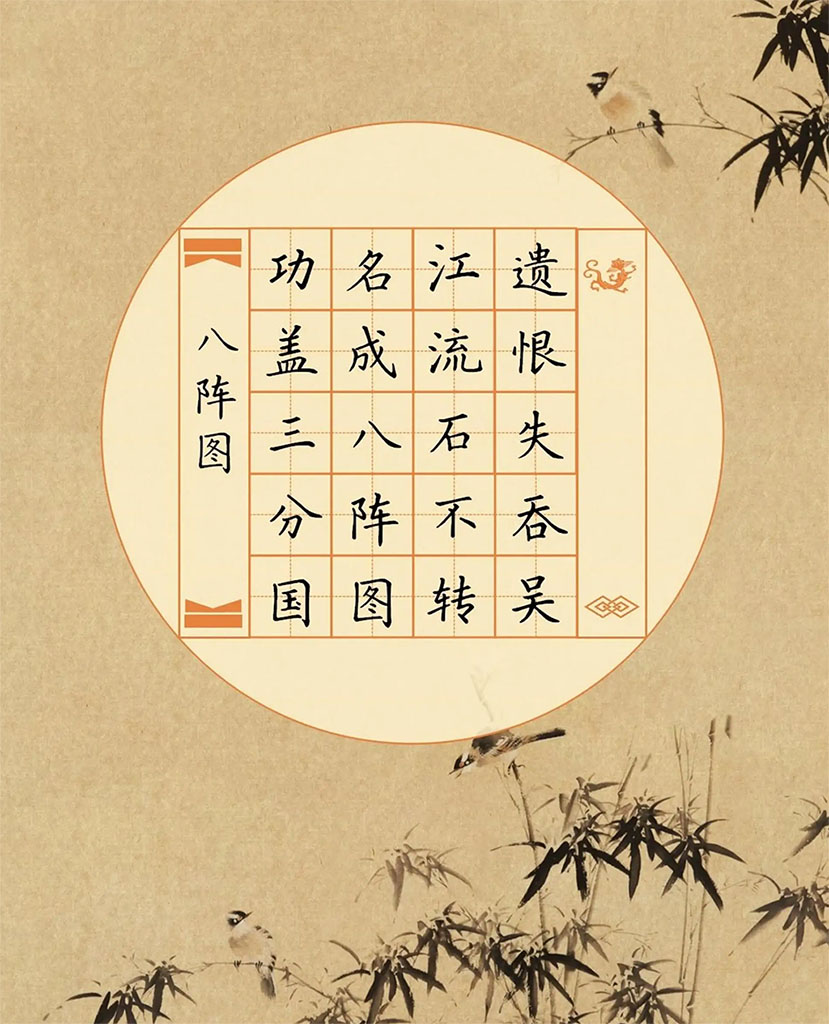 八阵图
功盖三分国
名成八阵图
江流石不转
遗恨失吞吴